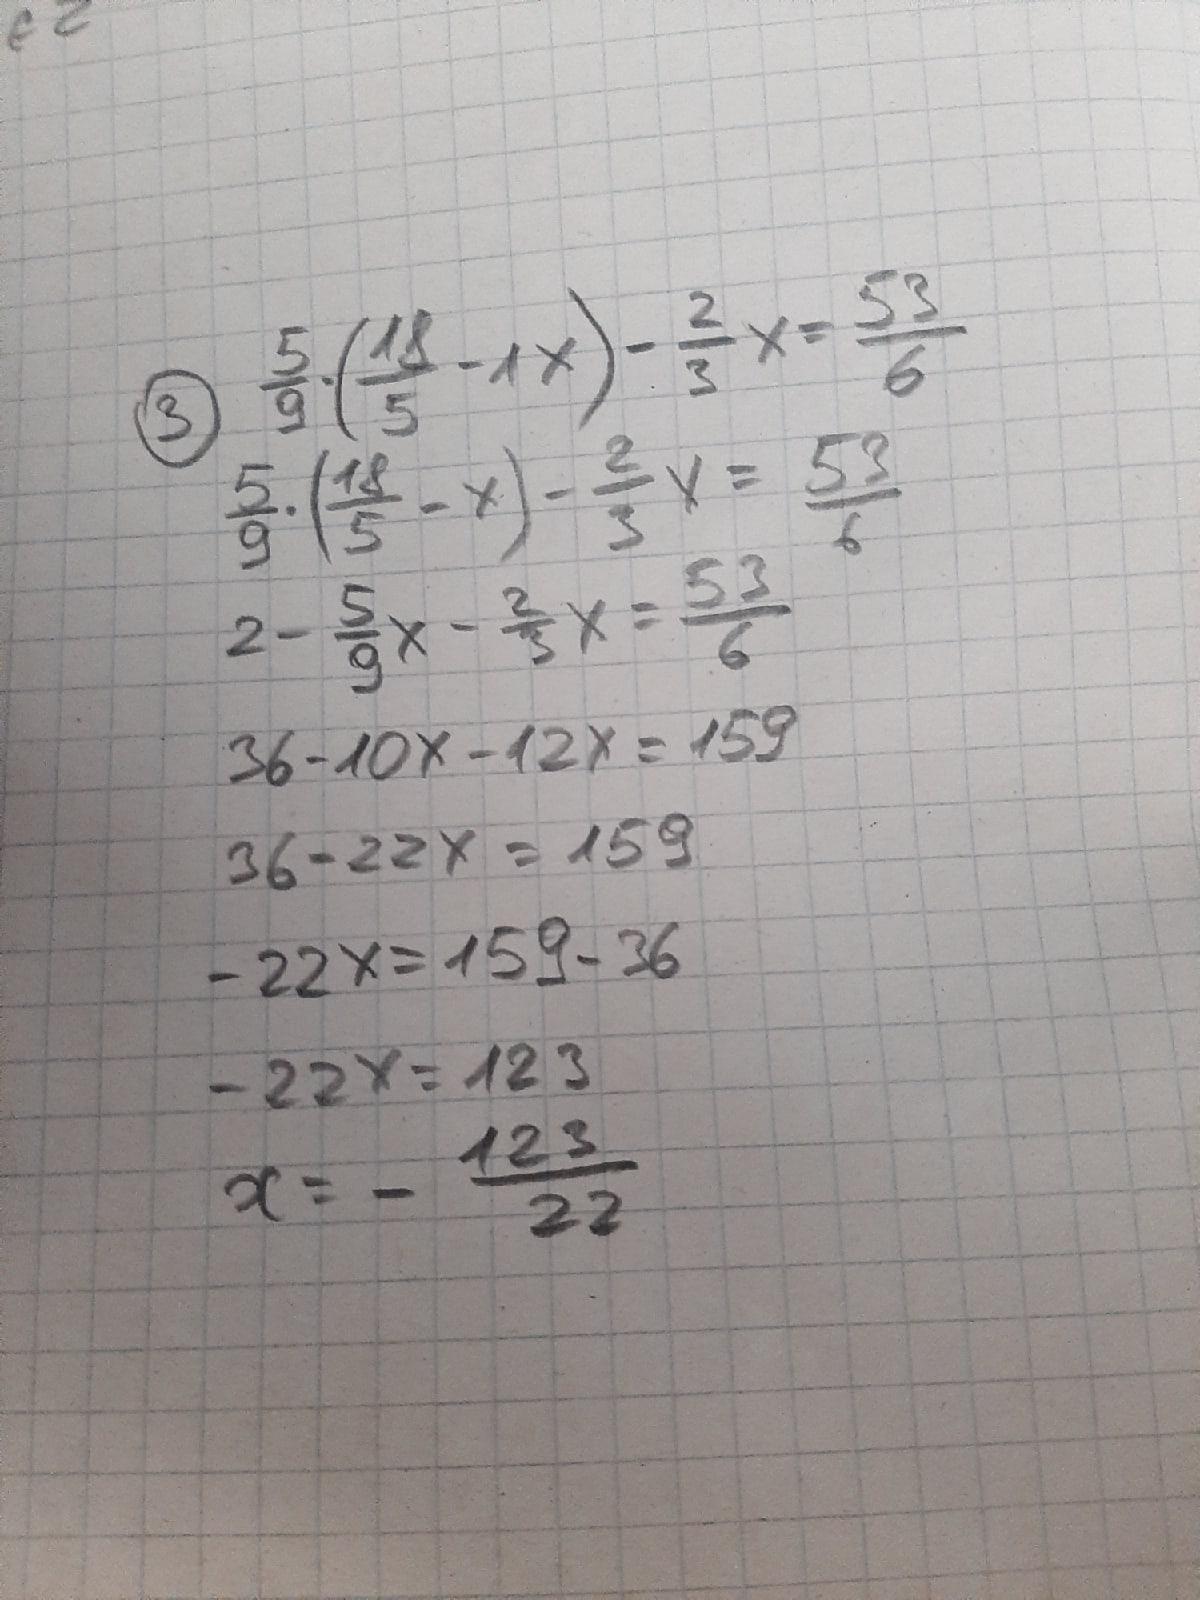 ③ 5/9 · (18/5 - 1x) - 2/3 x = 53/6
5/9 · (18/5 - x) - 2/3 x = 53/6
2 - 5/9 x - 2/3 x = 53/6
36 - 10x - 12x = 159
36 - 22x = 159
- 22x = 159 - 36
- 22x = 123
x = - 123/22